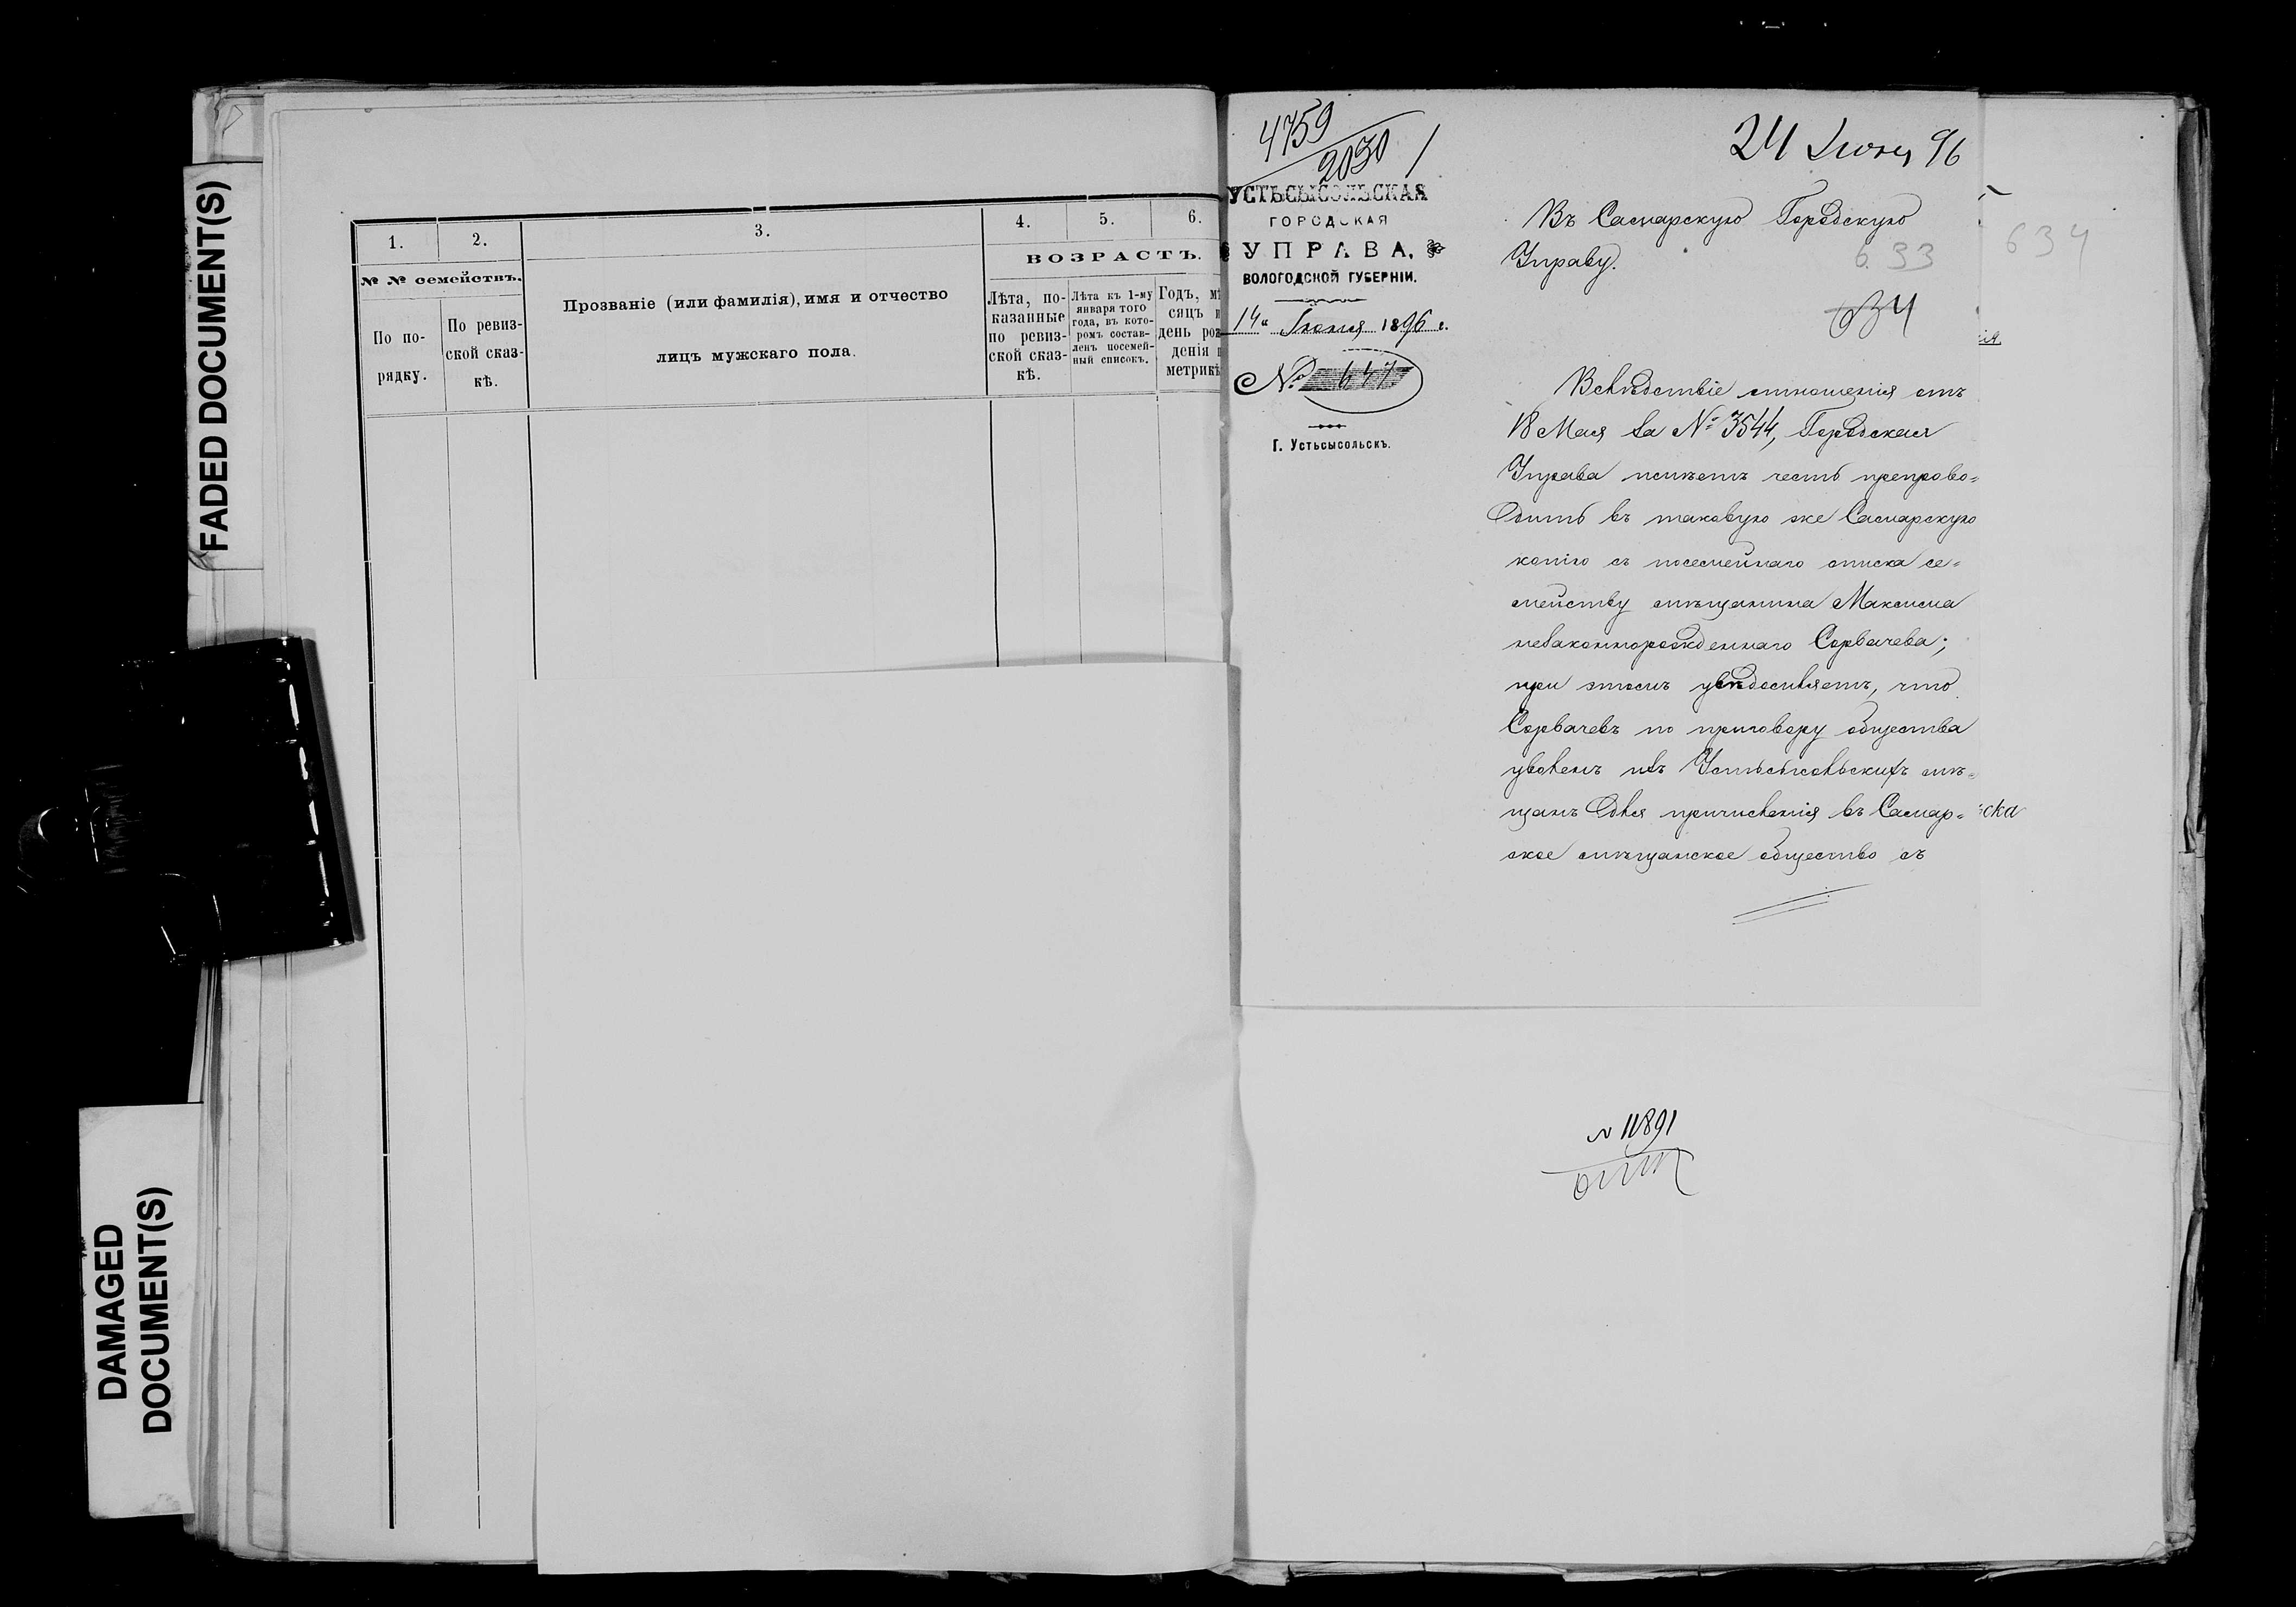 FADED DOCUMENT(S)
DAMAGED
DOCUMENT(S)
1.
2.
3.
4.
5.
6.
№ № семействъ.
ВОЗРАСТЪ.
По по-
рядку.
По ревиз-
ской сказ-
кѣ.
Прозваніе (или фамилія), имя и отчество
лицъ мужскаго пола.
Лѣта, по-
казанные
по ревиз-
ской сказ-
кѣ.
Лѣта къ 1-му
января того
года, въ кото-
ромъ состав-
ленъ посемей-
ный списокъ.
Годъ, мѣ
сяцъ и
день рож
денія п
метрикѣ
4759
2030
УСТЬСЫСОЛЬСКАЯ
ГОРОДСКАЯ
УПРАВА.
ВОЛОГОДСКОЙ ГУБЕРНІИ.
14 " Іюня 1896 г.
№ 647
Г. Устьсысольскъ.
24 Іюня 96
Въ Самарскую Городскую
Управу.
633
634
634
Вслѣдствіе отношенія отъ
18 Мая за № 3544, Городская
Управа имѣетъ честь препрово=
дить въ таковую же Самарскую
копію съ посемейнаго списка се=
мейству мѣщанина Максима
незаконнорожденнаго Сорвачева;
при этомъ увѣдомляетъ, что
Сорвачевъ по приговору общества
уволенъ изъ Устьсысольскихъ мѣ=
щанъ для причисленія въ Самар=
ское мѣщанское общество съ
ска
ія.
№ 11891